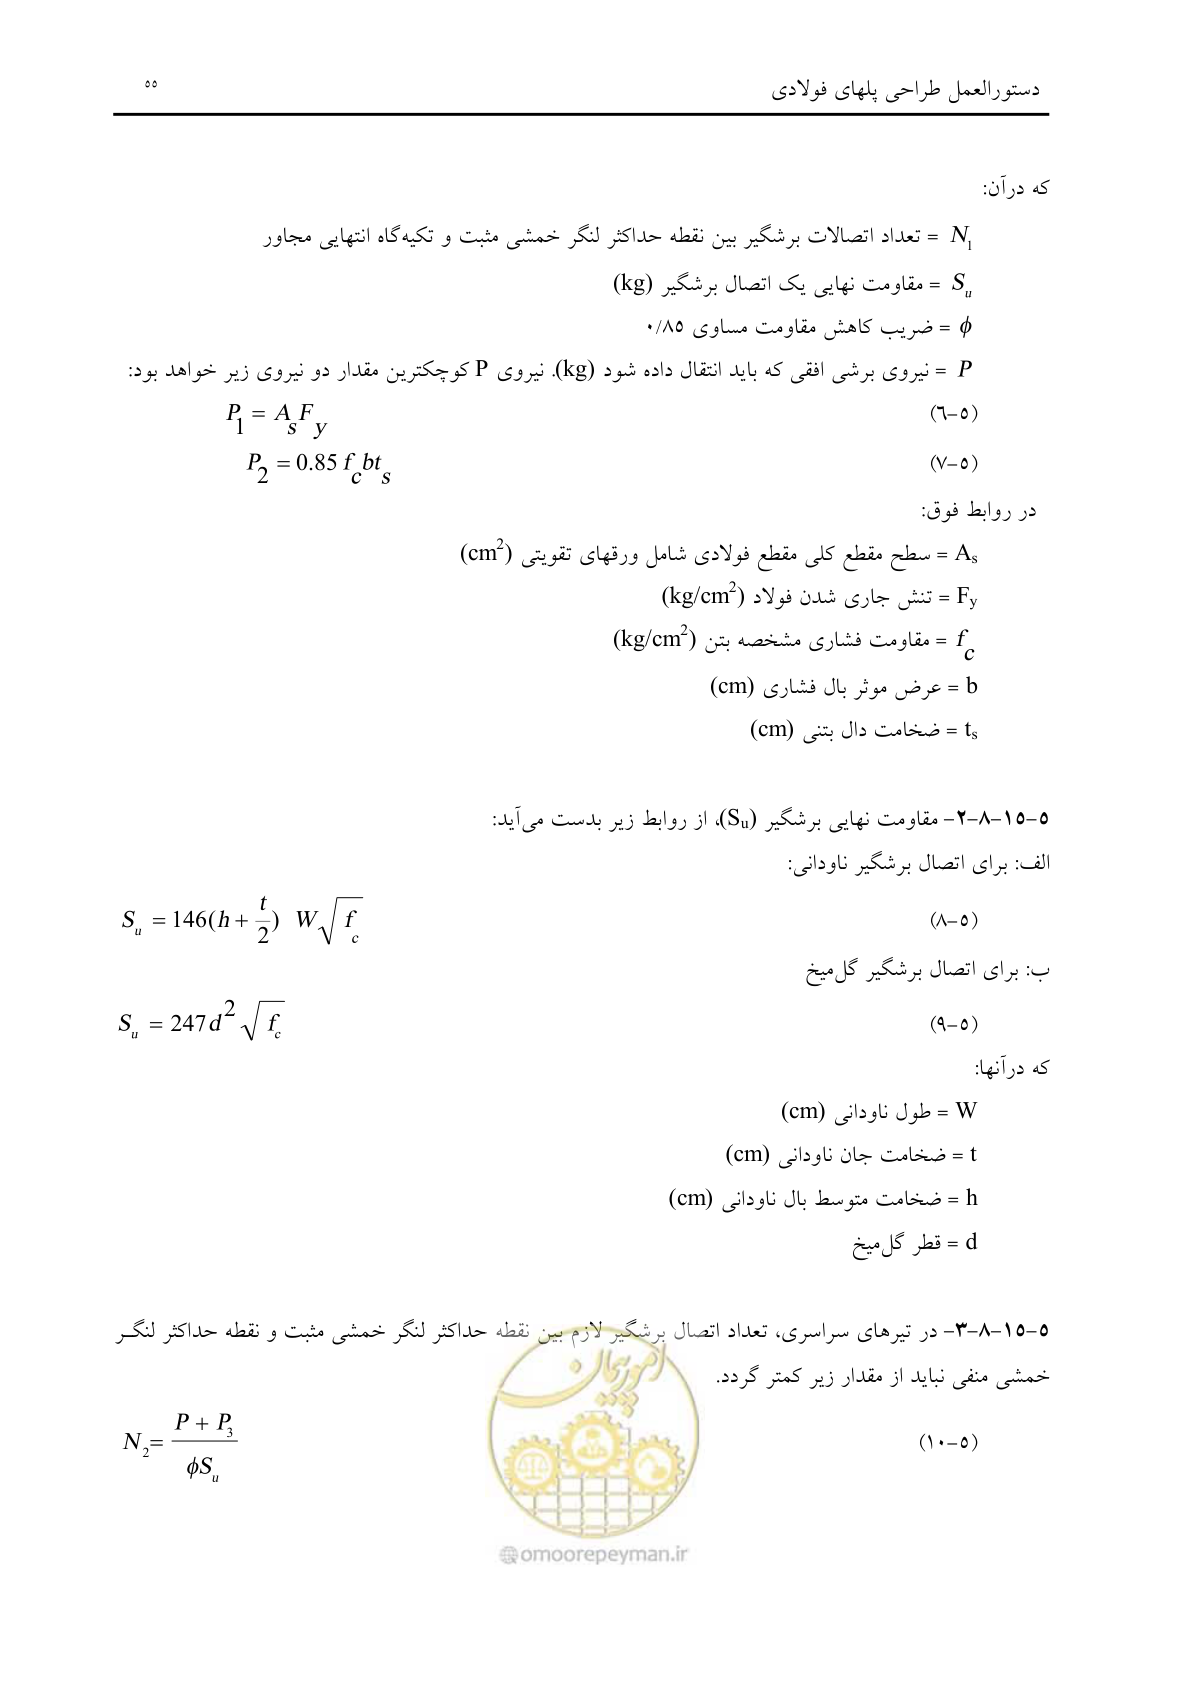 دستورالعمل طراحی پلهای فولادی ۵۵
که درآن:
N1 = تعداد اتصالات برشگیر بین نقطه حداکثر لنگر خمشی مثبت و تکیه‌گاه انتهایی مجاور
Su = مقاومت نهایی یک اتصال برشگیر (kg)
ϕ = ضریب کاهش مقاومت مساوی ۰/۸۵
P = نیروی برشی افقی که باید انتقال داده شود (kg). نیروی P کوچکترین مقدار دو نیروی زیر خواهد بود:
(۵-۶) P1 = As Fy
(۵-۷) P2 = 0.85 fc b ts
در روابط فوق:
As = سطح مقطع کلی مقطع فولادی شامل ورقهای تقویتی (cm²)
Fy = تنش جاری شدن فولاد (kg/cm²)
fc = مقاومت فشاری مشخصه بتن (kg/cm²)
b = عرض موثر بال فشاری (cm)
ts = ضخامت دال بتنی (cm)
۵-۱۵-۸-۲- مقاومت نهایی برشگیر (Su)، از روابط زیر بدست می‌آید:
الف: برای اتصال برشگیر ناودانی:
(۵-۸) Su = 146(h + t/2) W√fc
ب: برای اتصال برشگیر گل‌میخ
(۵-۹) Su = 247 d² √fc
که درآنها:
W = طول ناودانی (cm)
t = ضخامت جان ناودانی (cm)
h = ضخامت متوسط بال ناودانی (cm)
d = قطر گل‌میخ
۵-۱۵-۸-۳- در تیرهای سراسری، تعداد اتصال برشگیر لازم بین نقطه حداکثر لنگر خمشی مثبت و نقطه حداکثر لنگـر
خمشی منفی نباید از مقدار زیر کمتر گردد.
(۵-۱۰) N2 = (P + P3) / ϕSu
امور پیمان
@omoorepeyman.ir